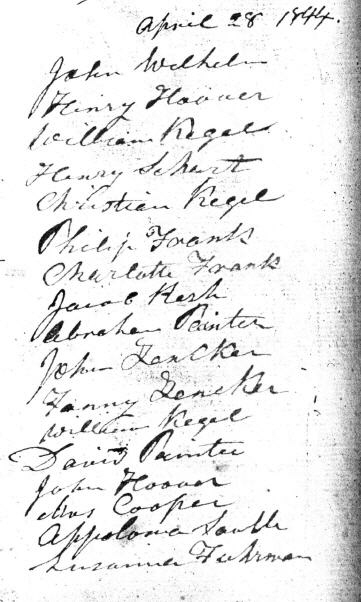 April 28 1844.
John Wilhelm
Henry Hoover
William Kegel
Henry Sechrst
Christian Kegel
Philip Frank
Charlotte Frank
Jacob Kesh
Abraham Painter
John Zencker
Fanny Zencker
William Kegel
David Painter
John Hoover
Mrs Cooper
Appolona
Susanna Fuhrman